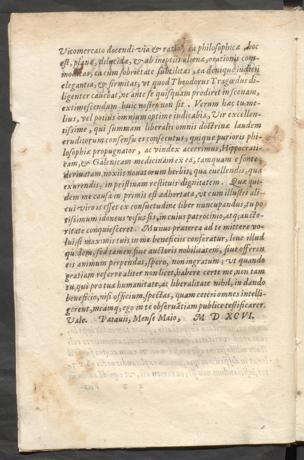 Vicomercato docendi via & ratio, ea philosophica, hoc
est, plana, dilucida, & ab ineptiis aliena, orationis com-
moditas, ea cum sobrietate subtilitas, ea denique iudicii
elegantia, & firmitas, vt quod Theodorus Tragœdus di-
ligenter cauebat, ne ante se quisquam prodiret in scenam,
extimescendum huic nostro non sit. Verum hac tu me-
lius, vel potius omnium optime iudicabis, Vir excellen-
tissime, qui summam liberali omnis doctrinæ laudem
eruditorum consensu es consecutus, quique purioris phi-
losophiæ propugnator, ac vindex acerrimus, Hippocrati-
cam, & Galenicam medicinam ex ea, tamquam e fonte
deriuatam, noxiis nouatorum herbis, qua euellendis, qua
exurendis, in pristinam restituis dignitatem. Qua qui-
dem me causa in primis est adhortata, vt cum illustri ali-
cui viro is esset ex consuetudine liber nuncupandus, tu po-
tissimum idoneus visus sis, in cuius patrocinio, atq; aucto-
ritate conquiesceret. Munus præterea ad te mittere vo-
lui: si maximis tuis in me beneficiis conferatur, leue illud
quidem, sed tamen siue auctoris nobilitatem, siue offeren-
tis animum perpendas, spero, non ingratum; vt quando
gratiam referre aliter non licet, habere certe me, non tam
tu, qui pro tua humanitate, ac liberalitate nihil, in dando
beneficio, nisi officium, spectas, quam ceteri omnes intelli-
gerent, meamq; ego in te obseruatiam publice testificarer.
Vale. Patauii, Mense Maio, M D XCVI.